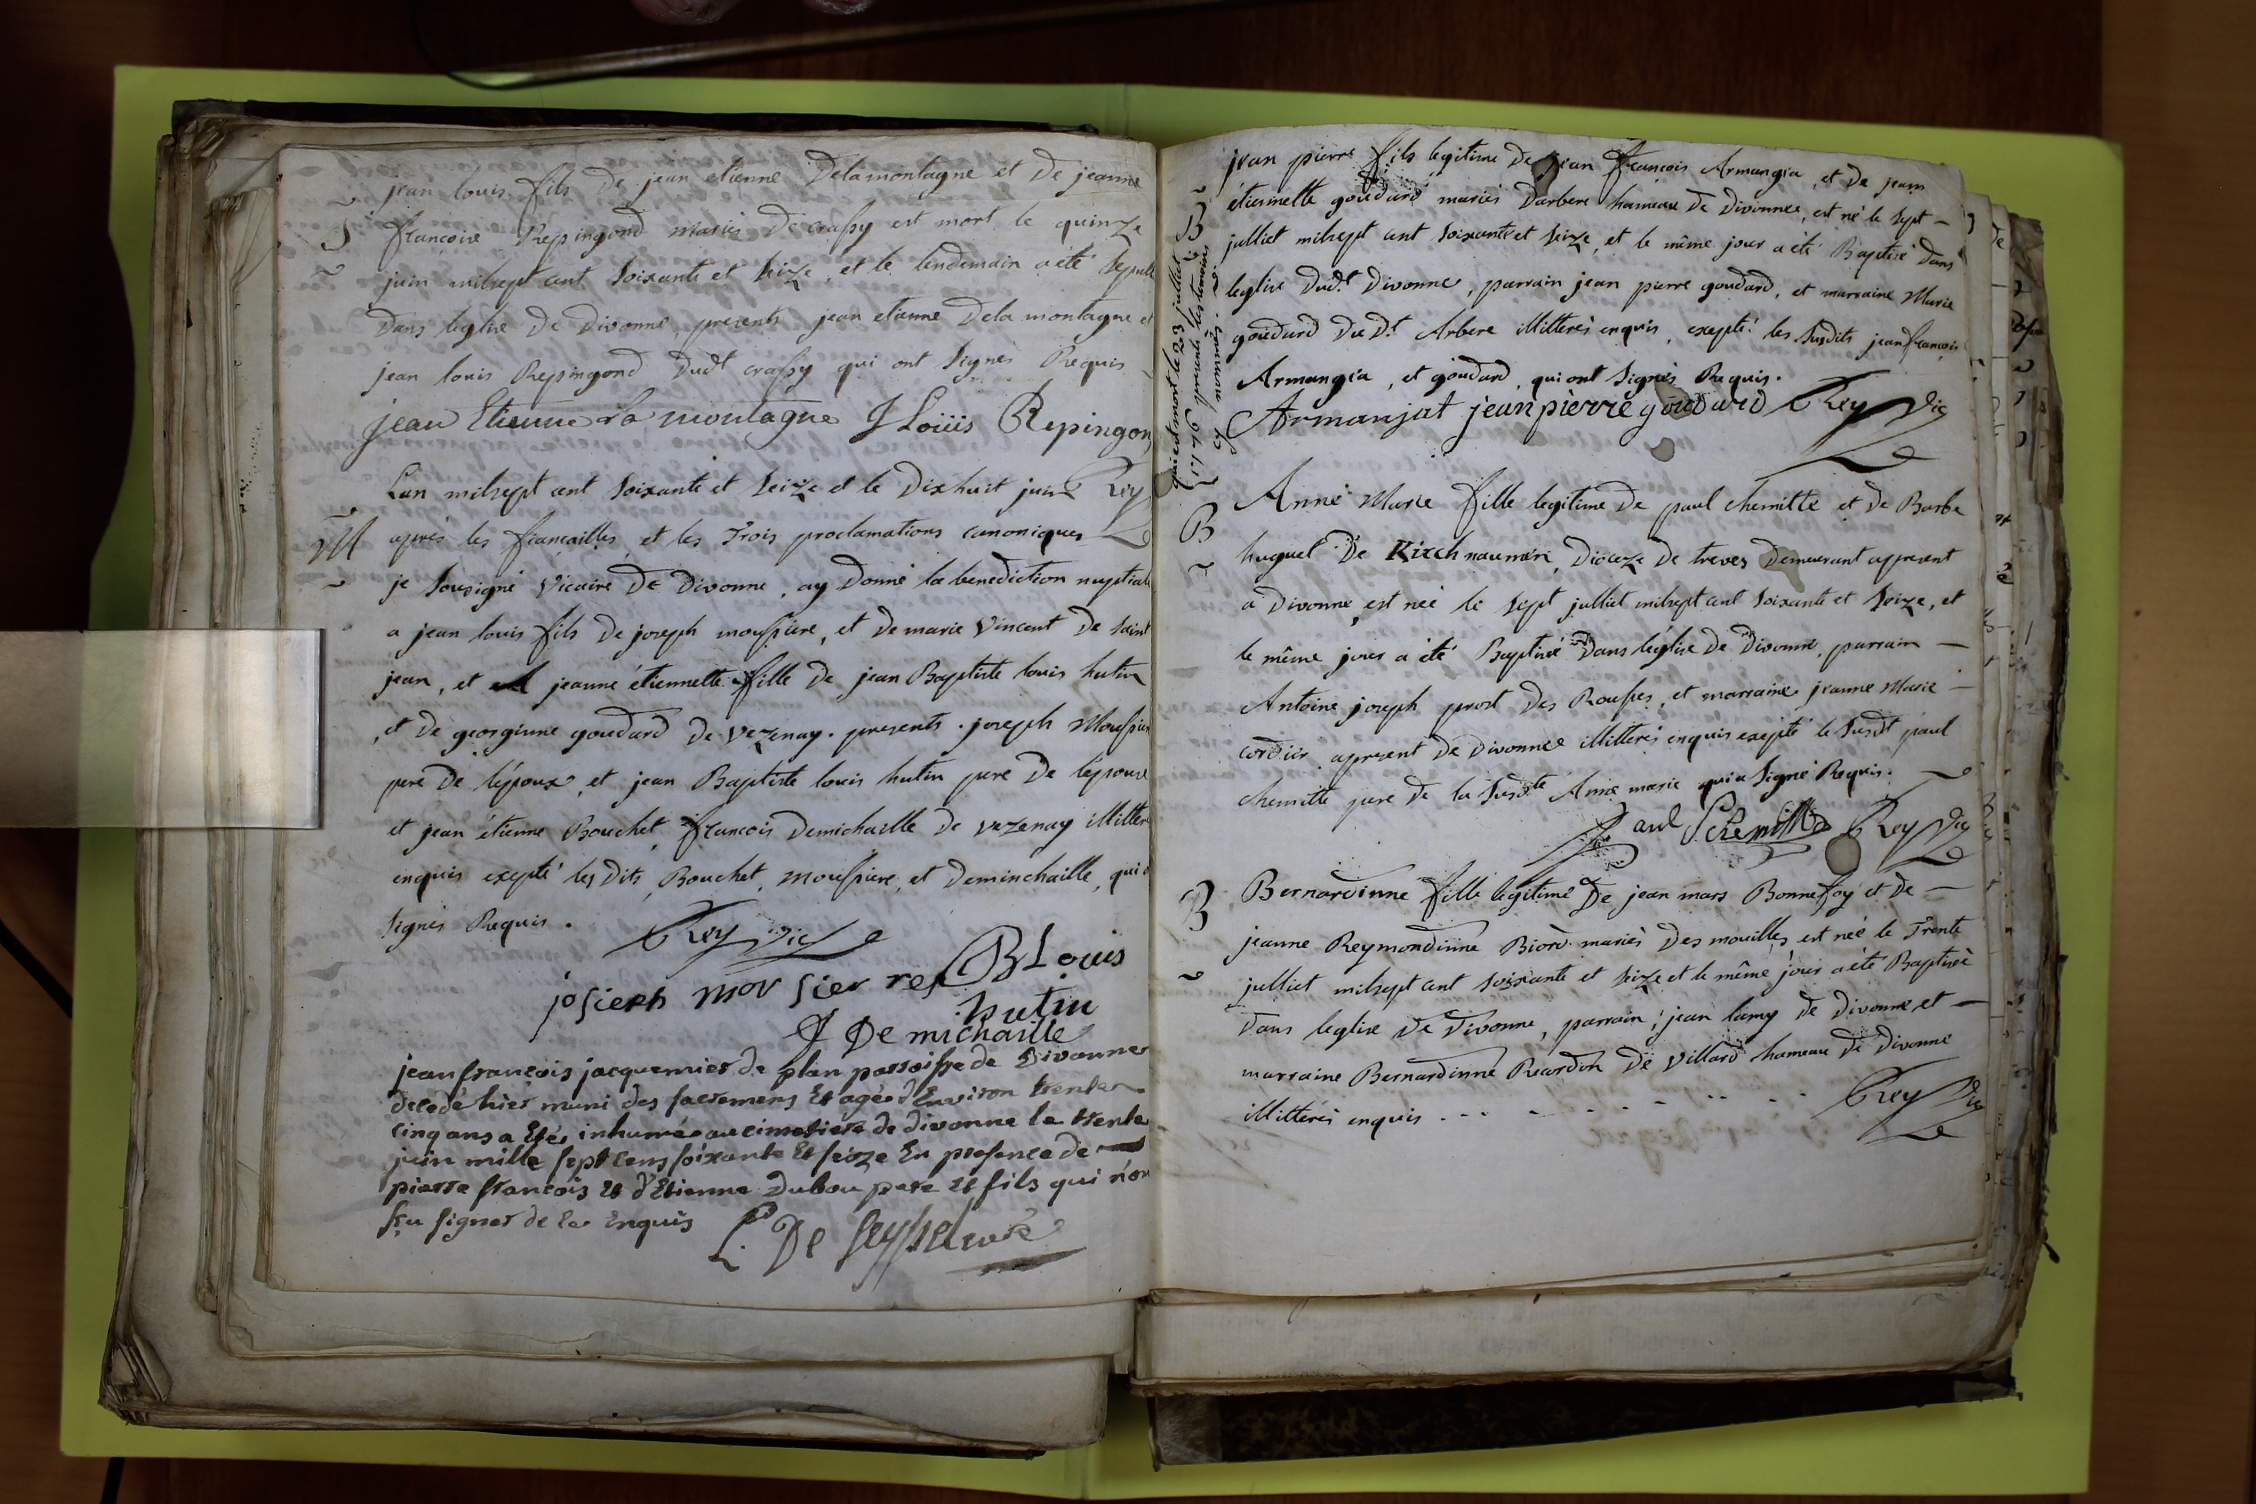 jean louis fils de jean etienne Delamontagne et de jeanne
S
francoise Repingond mariés de crassy est mort le quinze
juin milsept cent soixante et seize, et le lendemain a été sepult
dans leglise de divonne, presents jean etienne Dela montagne et
jean louis Repingond dudt crassy qui ont signés Requis
jean Etienne la montagne J Loüis Repingon
Lan milsept cent soixante et seize et le dixhuit juin Rey
M
après les fiancailles, et les trois proclamations canoniques
je sousigné vicaire de divonne, ay donné la benediction nuptiale
a jean louis fils de joseph moussiere, et de marie vincent de saint
jean, et jeanne étiennette fille de jean Baptiste louis hutin
et de georginne goudard de vezenay. presents. joseph Moussier
pere de lépoux, et jean Baptiste louis hutin pere de lépouse
et jean étienne Bouchet, francois demichaille de vezenay illiter
enquis excepté les dits Bouchet, moussiere, et deminchaille, qui o
signés Requis. Rey vic
josieph mov sier res B Louis
hutin
J De michaille
jean francois jacquemier de plan parroisse de Divonne
decedé hier muni des sacremens Et agé d'Environ trente
cinq ans a Eté inhumé au cimetiere de divonne le trente
juin mille sept cens soixante Et seize En presence de
pierre francois Et d'Etienne dubou pere Et fils qui n'on
sçu signer de ce Enquis L. De Seyssel curé
jean pierre fils legitime de jean francois Armangia, et de jean
B
étiennette goudard mariés darbere hameau de divonne, est né le sept
julliet milsept cent soixante et seize, et le même jour a été Baptisé dans
leglise dudt. divonne, parrain jean pierre goudard, et marraine Marie
goudard du dt. Arbere illitterés enquis, excepté les susdits jean francois
Armangia, et goudard, qui ont signés Requis.
Armanjat jean pierre goudard Rey vic
qui est mort le 23 julliet
1776 presents les temoins
sus només.
Anne Marie fille legitime de paul chemitte et de Barbe
B
huguel de Kirchnaumen, dioceze de treves demeurant appresent
a divonne, est née le sept julliet milsept cent soixante et seize, et
le même jour a été Baptisée dans léglise de divonne, parrain
Antoine joseph prost des Rousses, et marraine jeanne Marie
cordier apresent de divonne illitterés enquis excépté le susdt paul
chemitte pere de la susdte Anne marie qui a signé Requis.
Paul Schemitt Rey Vic
B
Bernardinne fille legitime de jean marc Bonnefoy et de
jeanne Reymondinne Biord mariés des mouilles, est née le trente
julliet milsept cent soixante et seize et le même jour a été Baptisée
dans leglise de divonne, parrain, jean lamy de divonne et
marraine Bernardinne Reardon de villard hameau de divonne
illitterés enquis Rey Vic